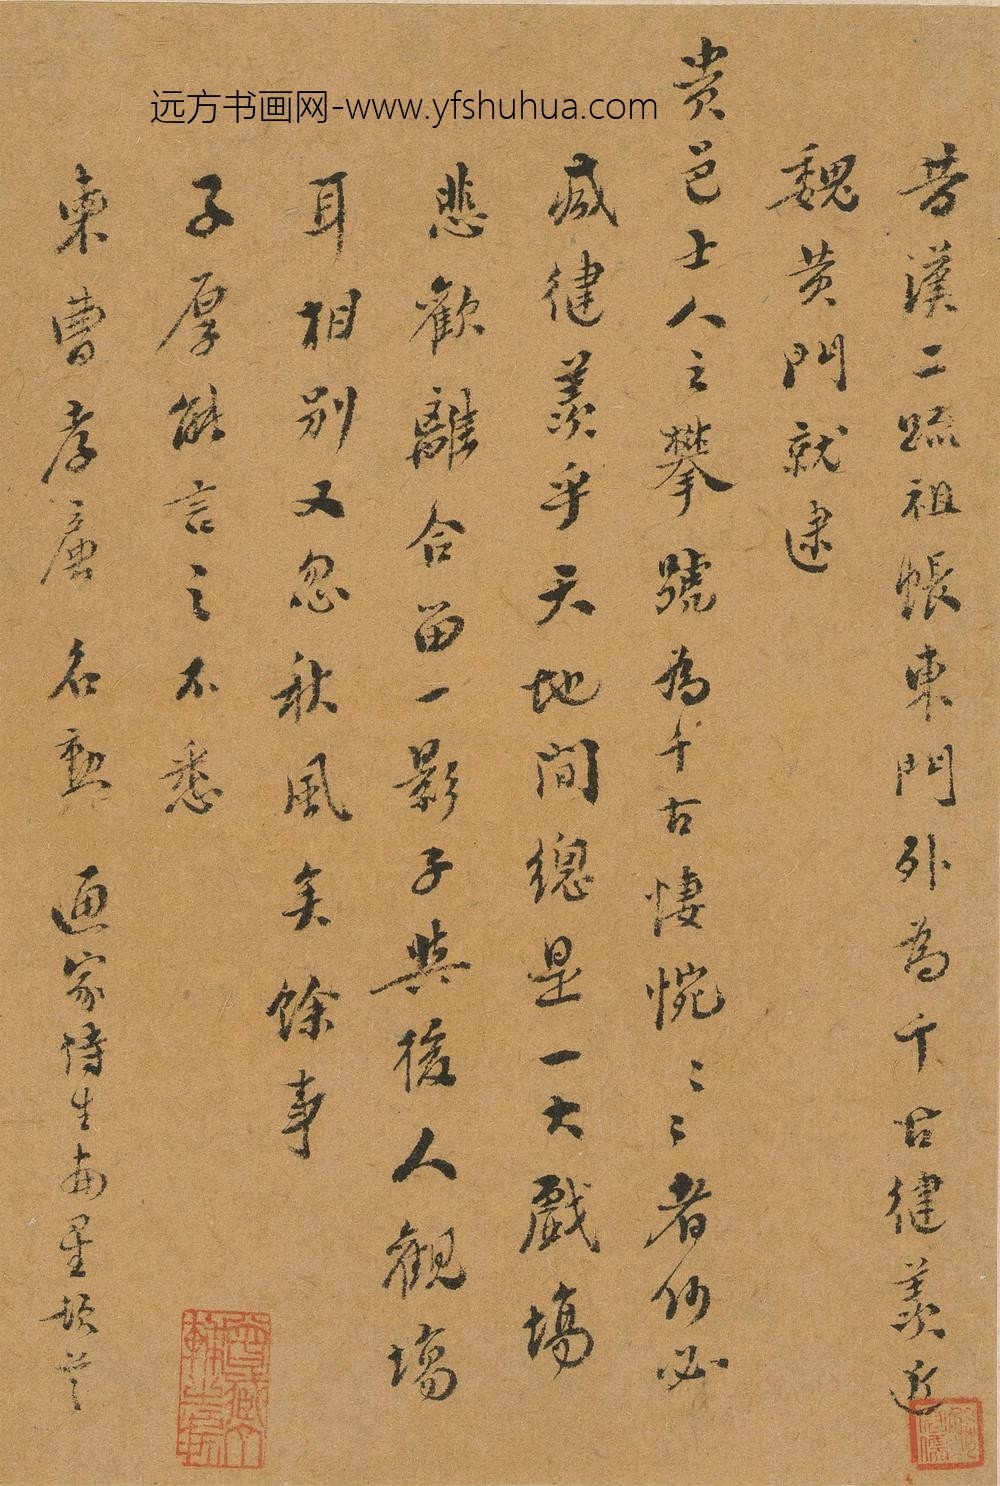 远方书画网-www.yfshuhua.com
昔漢二疏祖帳東門外為千古健羨近
魏黄門就逮
貴邑士人之攀號為千古悽惋〻〻者何必
減健羨乎天地間總是一大戲場
悲歡離合留一影子與後人觀場
耳相別又忽秋風矣餘事
子厚能言之不悉
東曹孝廉 名勲 通家侍生